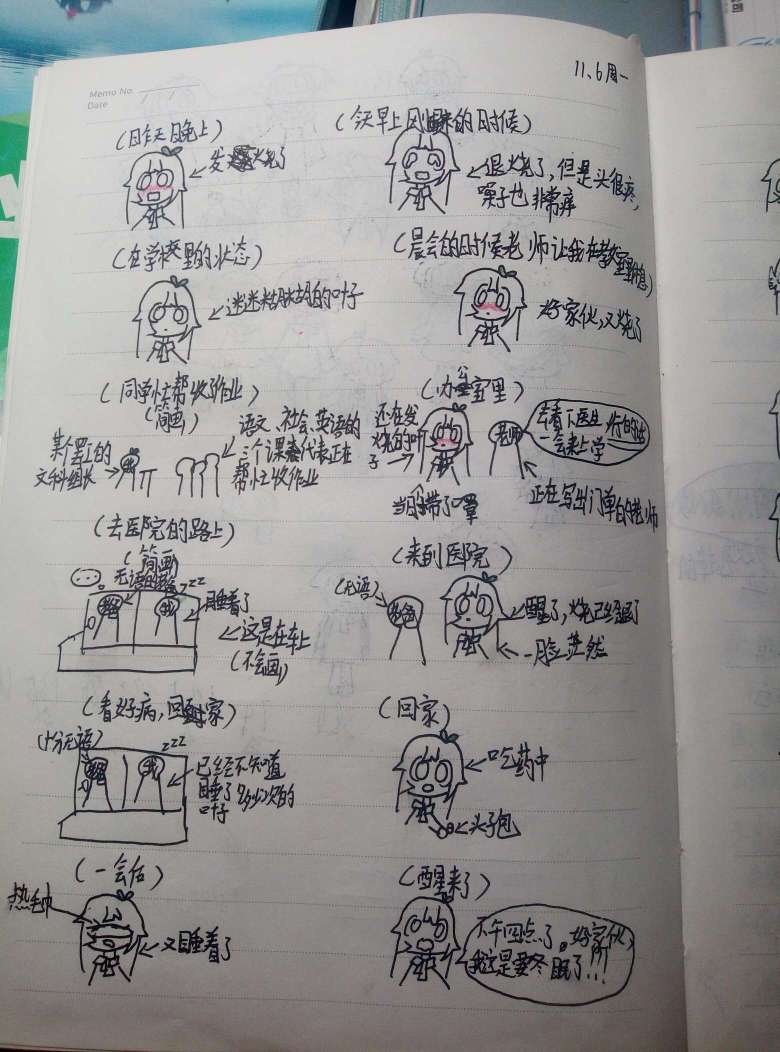 Memo No.
Date
11.6周一
(昨天晚上)
发烧了
(今天早上起来的时候)
退烧了，但是头很疼，
嗓子也非常痒
(在学校里的状态)
迷迷糊糊的叶子
(晨会的时候老师让我在教室里休息)
好家伙，又烧了
(同学帮忙收作业)
(简画)
某个罢工的
文科组长
语文、社会、英语的
三个课代表正在
帮忙收作业
(办公室里)
还在发
烧的叶
子
当时带了口罩
老师
去看下医生
一会来上学
正在写出门单的老师
(去医院的路上)
(简画)
无语的
zzz
我
睡着了
这是在车上
(不会画)
(来到医院)
(无语)
醒了，烧已经退了
一脸茫然
(看好病，回家)
(十分无语)
zzz
我
已经不知道
睡了多少次的
叶子
(回家)
吃药中
头孢
(一会后)
热毛巾
又睡着了
(醒来了)
下午四点了。好家伙，
我这是要冬眠了!!!